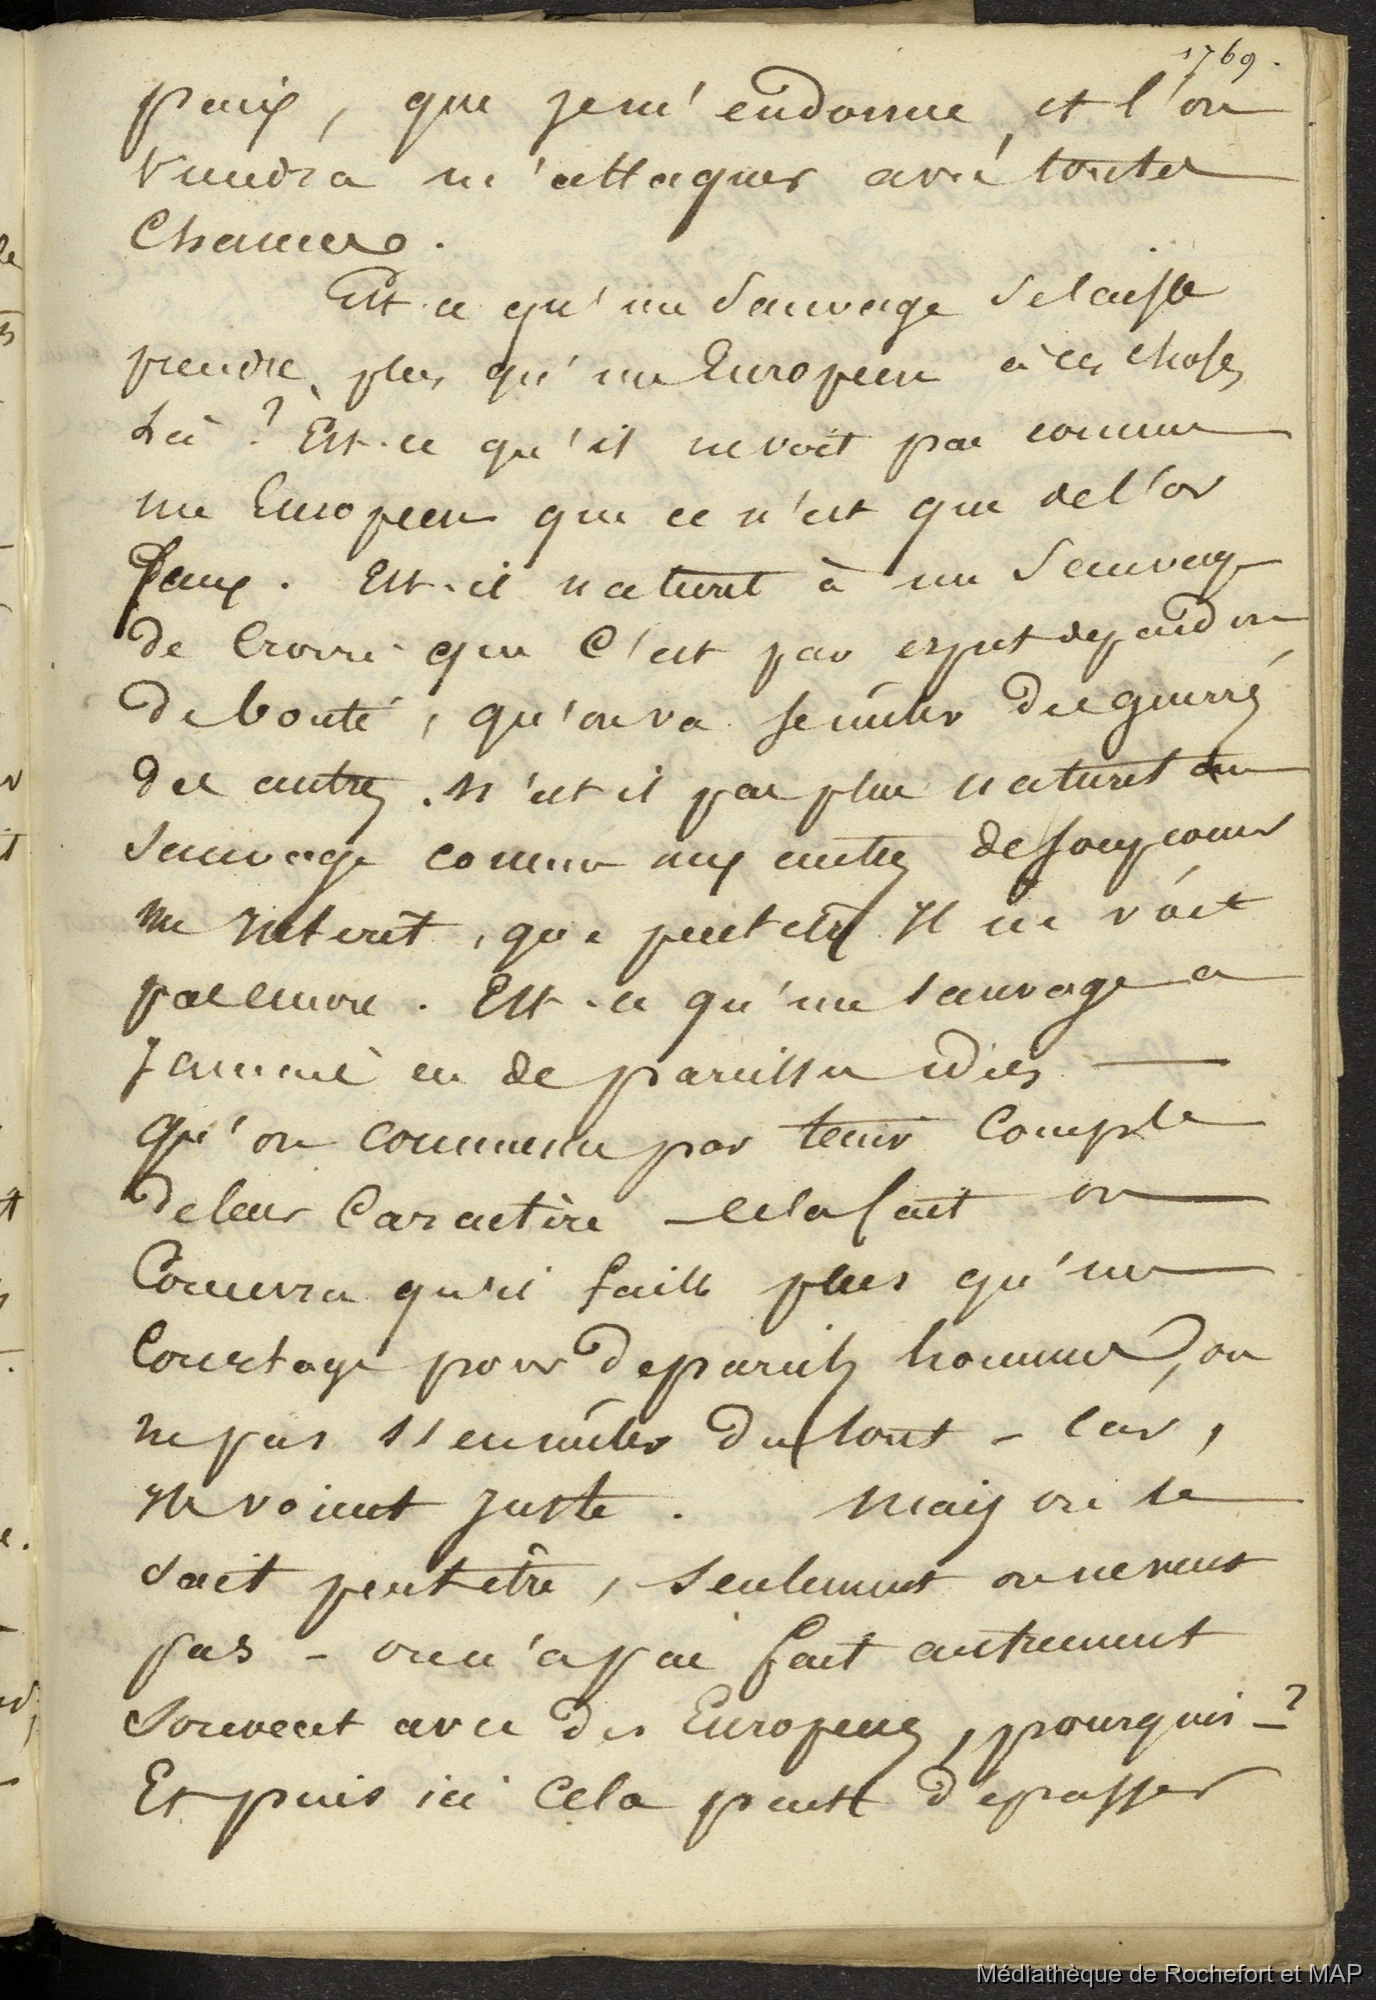 1769.
paix, que je m'endorme et l'on
viendra m'attaquer avec toutes
Chances.
Est-ce qu'un Sauvage se laisse
prendre plus qu'un Européen à ces choses
Là ? Est-ce qu'il ne voit pas comme
un Européen que ce n'est que de l'or
faux. Est-il naturel à un Sauvage
de Croire que C'est par esprit de pardon
de bonté, qu'on va se mêler des guerres
des autres. N'est il pas plus naturel au
Sauvage comme aux autres de soupçonner
un Interet, que peut etre Il ne voit
pas encore. Est-ce qu'un sauvage a
Jamais eu de pareilles idées
Qu'on commence par tenir Compte
de leur Caractère – cela fait on
Conviendra qu'il faille plus qu'un
Courtage pour de pareils hommes, ou
ne pas s'en mêler du tout – Car,
Ils voient Juste. Mais on le
sait peut être, seulement on ne veut
pas – on n'a pas fait autrement
souvent avec des Européens, pourquoi – ?
Et puis ici Cela peut dépasser
Médiathèque de Rochefort et MAP